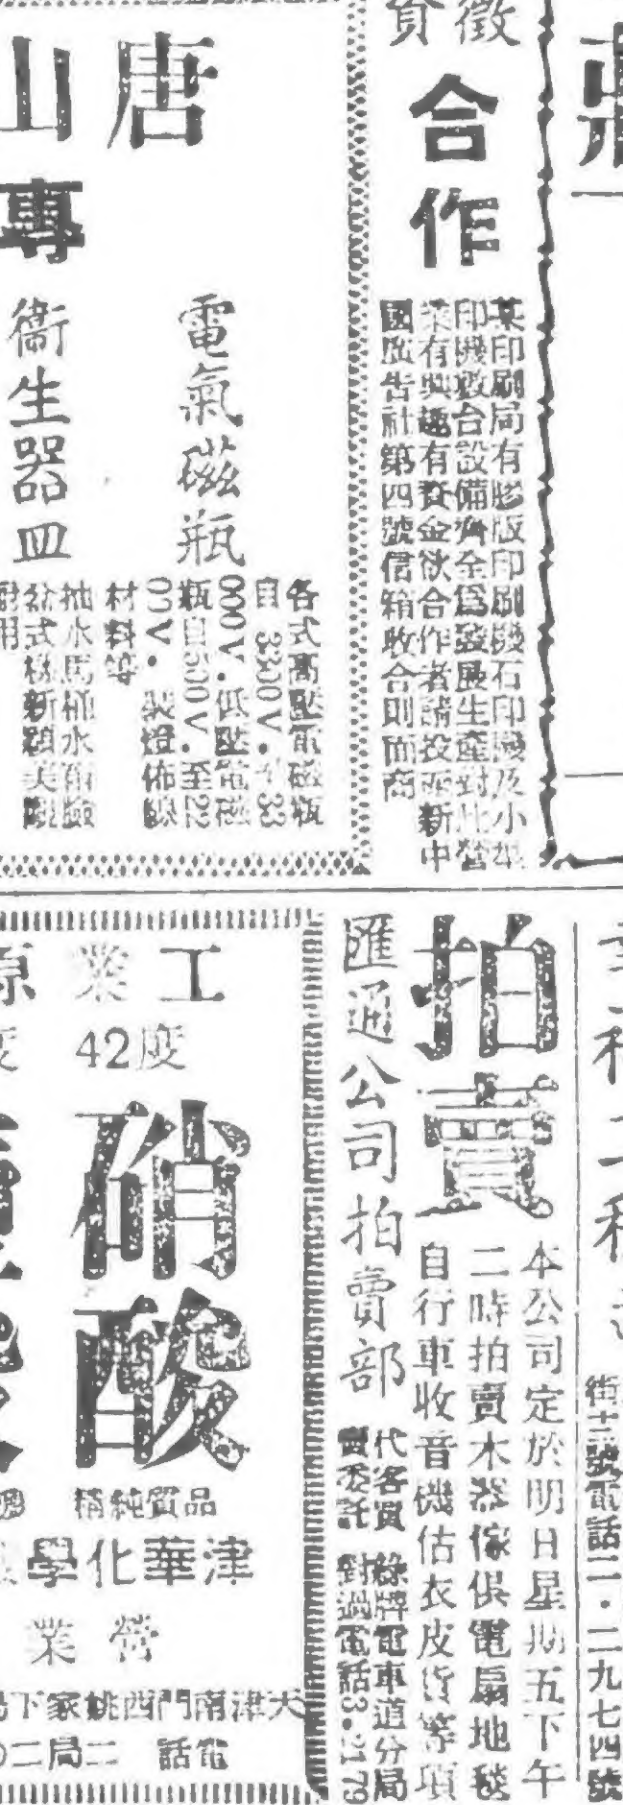 徵
資
合作
某印刷局有膠版印刷機石印機及小
印機數台設備齊全為發展生產對此營
業有興趣有資金欲合作者請投函新中
國廣告社第四號信箱收合則面商
唐
山
專
電氣磁瓶
各式高壓電磁瓶
自3300V.
000V.低壓電磁
瓶自500V.至22
00V.裝燈佈線
材料等
衞生器皿
抽水馬桶水箱臉
盆式樣新穎美觀
街 號電話二・二九七四號
拍賣
本公司定於明日星期五下午
二時拍賣木器傢俱電扇地毯
自行車收音機估衣皮貨等項
匯通公司拍賣部
代客買
賣委託
綠牌電車道分局
對過電話3・2179
工業原
42度
硝酸
品質純精
津華化學
營業
天津南門西姚家下
電話 二局二